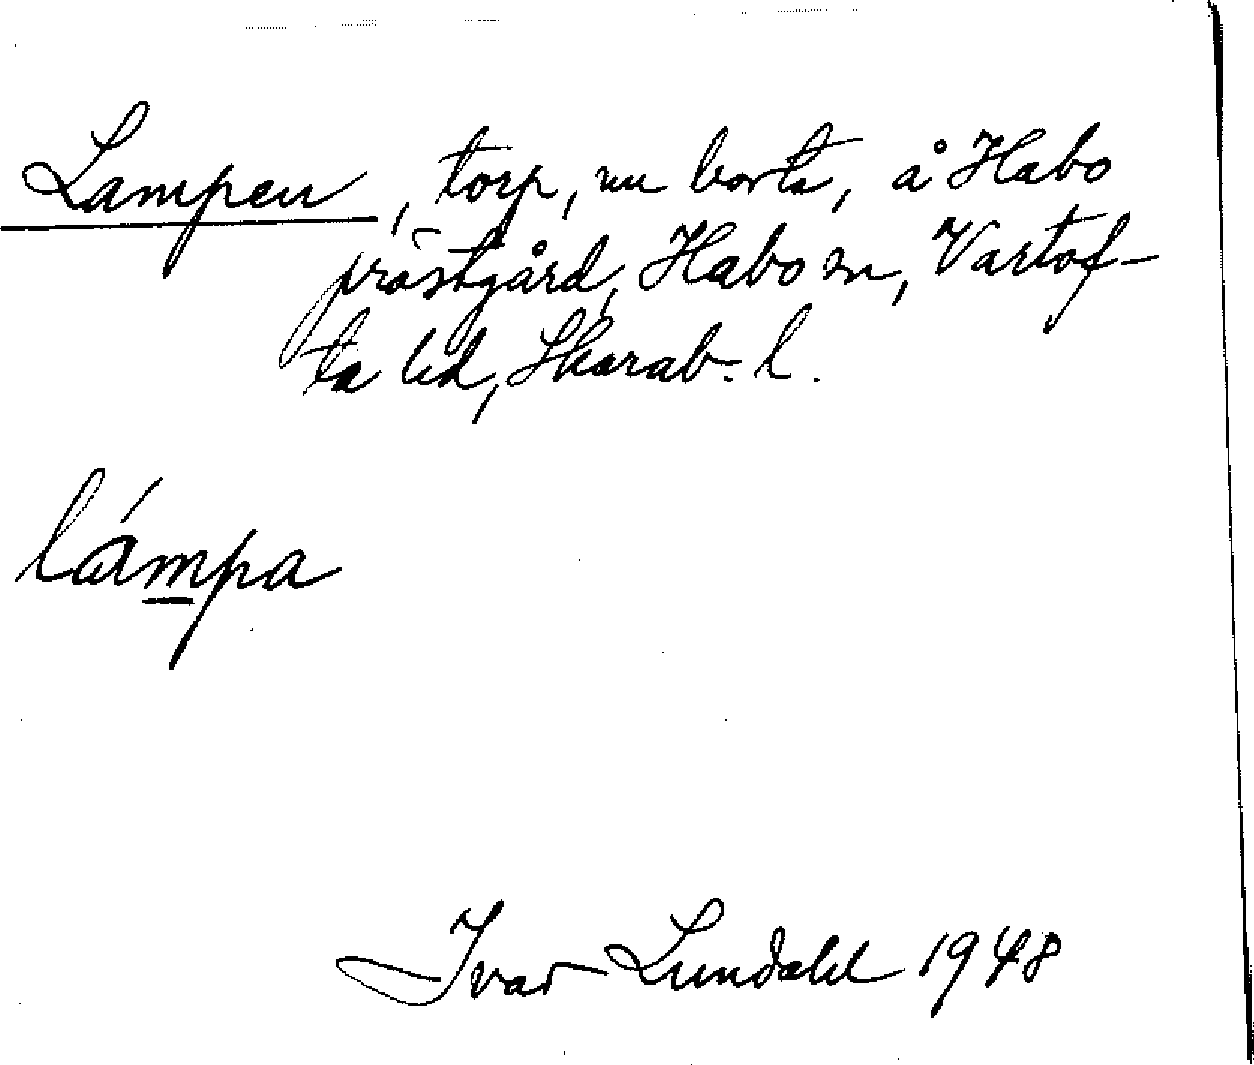 Lampen, torp, nu borta, å Habo
prästgård, Habo sn, Vartof-
ta hd, Skarab. l.
lámpa
Ivar Lundahl 1948